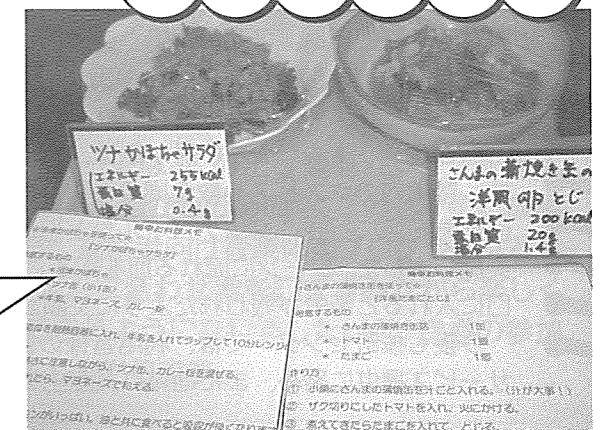 ツナかぼちゃサラダ
エネルギー 255kcal
蛋白質 7g
塩分 0.4g
さんまの蒲焼き缶の
洋風卵とじ
エネルギー 200kcal
蛋白質 20g
塩分 1.4g
簡単お料理メモ
『ツナかぼちゃサラダ』
ツナ缶(小1缶)
牛乳、マヨネーズ、カレー粉
耐熱容器に入れ、牛乳を入れてラップして10分レンジ
に注意しながら、ツナ缶、カレー粉を混ぜる。
たら、マヨネーズで和える。
ンがいっぱい、油と共に食べると吸収が良くなります
簡単お料理メモ
さんまの蒲焼き缶を使って☆
『洋風たまごとじ』
用意するもの
* さんまの蒲焼き缶詰 1缶
* トマト 1個
* たまご 1個
作り方
① 小鍋にさんまの蒲焼缶を汁ごと入れる。(汁が大事!)
② ザク切りにしたトマトを入れ、火にかける。
③ 煮えてきたらたまごを入れて、とじる。